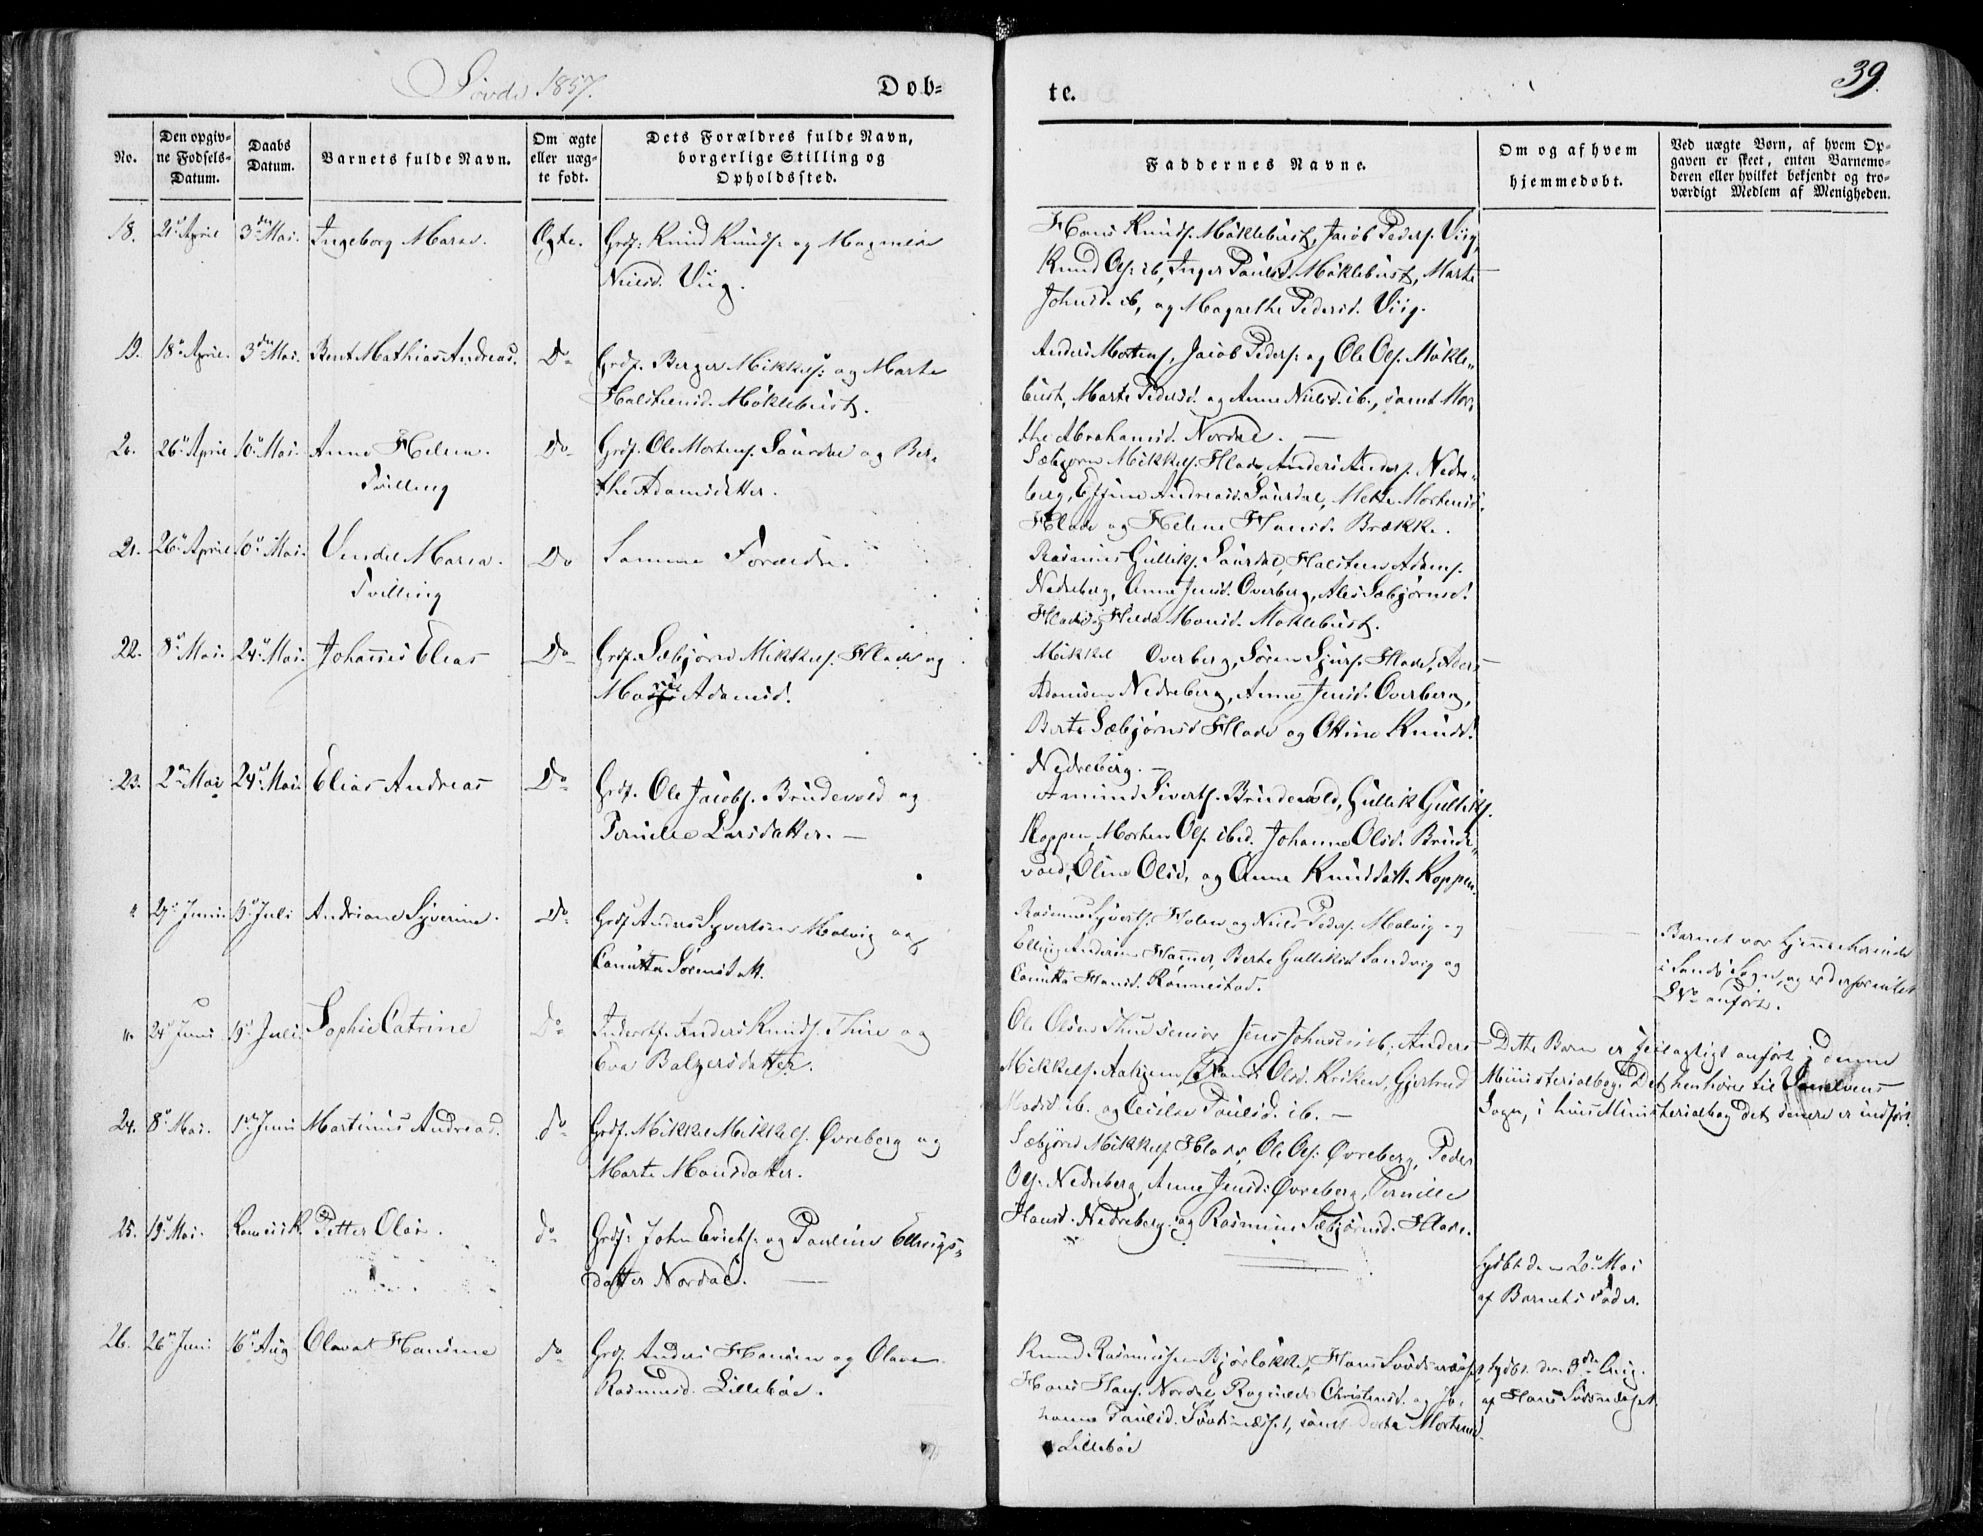 Søvde 1857.
Døb-
te.
39.
No.
Den opgiv-
ne Fødsels-
Datum.
Daabs
Datum.
Barnets fulde Navn.
Om ægte
eller uæg-
te født.
Dets Forældres fulde Navn,
borgerlige Stilling og
Opholdssted.
Faddernes Navne.
Om og af hvem
hjemmedøbt.
Ved uægte Børn, af hvem Op-
gaven er skeet, enten Barnemo-
deren eller hvilket bekjendt og tro-
værdigt Medlem af Menigheden.
18. 21 April 3die Mai. Ingeborg Maria. Ægte. Grdf: Knud Knuds: og
Nielsd. Viig.
Hans Knuds. Møklebust, Jacob Peders. Viig,
Knud Ols: ib, Inger Paulsd. Møklebust, Marte
Johnsd. ib, og Magrethe Pedersd. Viig.
19. 18 April. 3die Mai. Bent Mathias Andreas. Do Grdf. Berger Mikkels: og Marte
Halsteensd. Møklebust.
Anders Mortens, Jacob Peders: og Ole Ols. Møkle-
bust, Marte Pedersd. og Anne Nielsd. ib., samt Mar-
the Abrahamsd. Nordal. —
20. 26 April 10 Mai. Anne Helena. Do Grdf. Ole Mortens. Saurdal og Ber-
Tvilling
the Adamsdatter.
Sæbjørn Mikkels. Hlade, Anders Anders. Nedre-
berg, Andreasd. Saurdal, Mette Mortensd.
Hlade og Helene Hansd. Brække.
21. 26 April 10 Mai. Vendel Maria. Do Samme Forældre.
Tvilling
Rasmus Gulliks. Saurdal, Halsteen Adams.
Nedreberg, Anne Jensd. Overberg, Sæbjørnsd.
Hlade og Monsd. Møklebust.
22. 8 Mai. 24 Mai. Johannes Elias Do Grdf. Sæbjørn Mikkels. Hlade og
Adamsd.
Mikkel Overberg, Søren Sjurs. Hlade,
Adamsen Nedreberg, Anne Jensd. Overberg,
Berte Sæbjørnsd Hlade og Ottine Knudsd.
Nedreberg. —
23. 2 Mai 24 Mai. Elias Andreas Do Grdf. Ole Jacobs. Brudevold og
Pernille Larsdatter. —
Amund Siverts. Brudevold, Gullik Gulliks.
Koppen, Morten Ols. ibid. Johanne Olsd. Brude-
vold, Oline Olsd, og Anne Knudsdatt. Koppen.
" 27 Juni 19 Juli Andriane Syverine. Do Grdf Anders Syvertsen Molvig og
Canutta Sørensdatt.
Rasmus Syverts. Holen og Niels Peders. Molvig og
Elling Andersen Hammer, Berte Gulliksd Sandvig og
Canutta Hansd. Rønnestad.
Barnet var hjemmehørende
i Sands Sogn, og er derfor intet
No anført.
" 24 Juni 19 Juli. Sophie Catrine Do Anders Knuds. og
Eva Balzersdatter.
Ole Olsen senior Jens Johnsen ib; Anders
Mikkels. Aahjem, Olsd. Kriken, Gjertrud
Madsd ib. og Cecilie Paulsd. ib. —
Dette Barn er feilagtigt anført i denne
Ministerialbog. Det henhører til Vanelvens
Sogn, i hvis Ministerialbog det senere er indført.
24. 8 Mai. 1 Juni Martinus Andreas. do Grdf. Mikkel Mikkels. Øvreberg og
Marte Monsdatter.
Sæbjørn Mikkels. Hlade, Ole Ols: Øvreberg, Peder
Ols. Nedreberg, Anne Jensd: Øvreberg, Pernille
Hansd. Nedreberg og Rasmine Sæbjørnsd. Hlade.
25. 19 Mai. Petter Olai. do Grdf: John Erichs: og Pauline Ellings-
datter Nordal. —
hjdbt den 20 Mai
af Barnets Fader.
26. 26 Juni 16 Aug Olava Hansine do Grdf. Anders Hansen og Olava
Rasmusd. Lillebøe.
Knud Rasmussen Bjørløkke, Hans Sovdsnæset
Hans Hans. Nordal Ragnilde Christensd. og Jo-
hanne Paulsd. Sovdsnæset, samt Dorte Mortensd.
Lillebøe
hjdbt den 3die Aug.
af Hans Sovdsnæset.